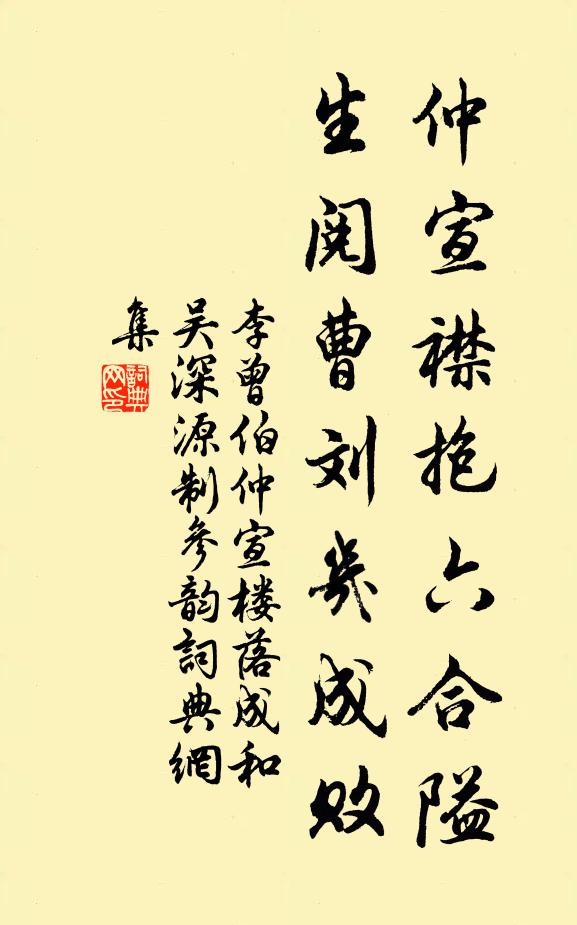 仲宣襟抱六合隘
生阅曹刘几成败
李曾伯仲宣楼落成和
吴深源制参韵词典網
集
詞典網印